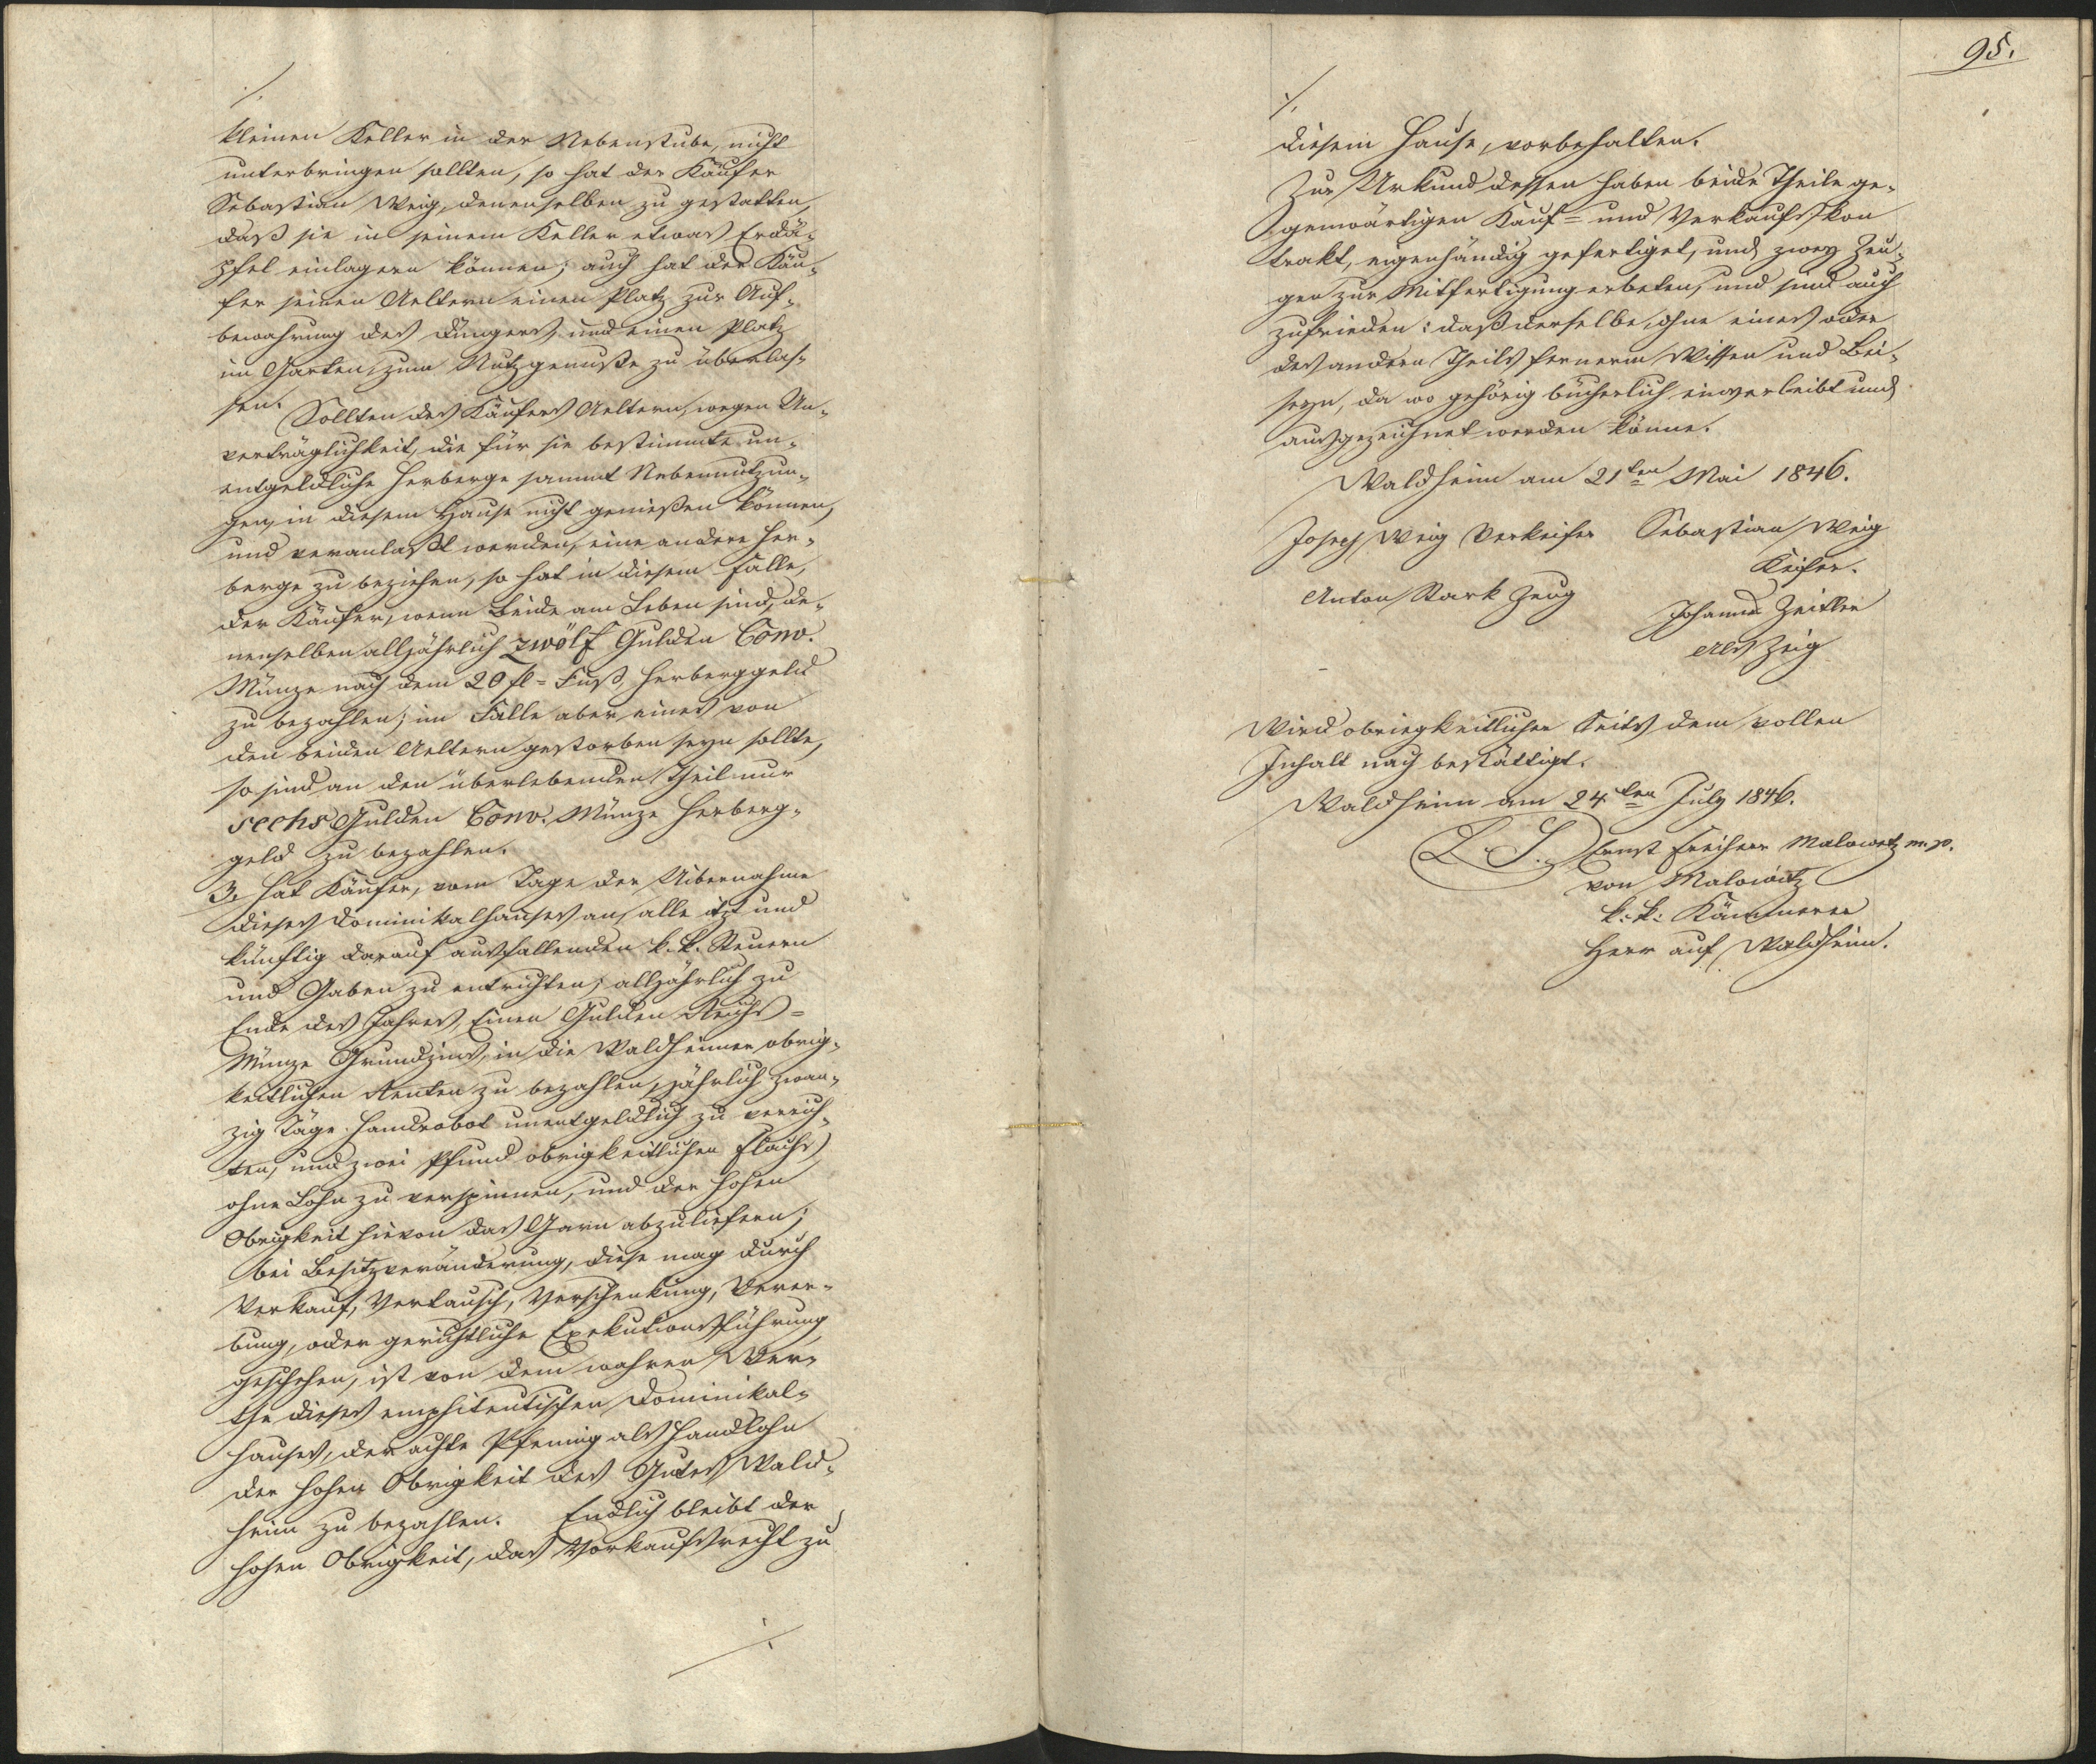 ./.
kleinen Keller in der Nebenstube, nicht
unterbringen sollten, so hat der Käufer
Sebastian Weig, denenselben zu gestatten,
daß sie in seinem Keller etwas Erdä-
pfel einlagern können; auch hat der Käu-
fer seinen Aeltern einen Platz zur Auf-
bewahrung des Düngers, und einen Platz
im Garten, zum Nutzgenuße zu überlas-
sen.
Sollten des Käufers Aeltern, wegen Un-
verträglichkeit, die für sie bestimmte un-
entgeldliche Herberge sammt Nebennutzun-
gen, in diesem Hause nicht genießen können,
und veranlaßt werden, eine andere Her-
berge zu beziehen, so hat in diesem Falle,
der Käufer, wenn Beide am Leben sind, de-
nenselben alljährlich zwölf Gulden Conv.
Münze nach dem 20 fl = Fuß, Herberggeld
zu bezahlen; im Falle aber eines von
den beiden Aeltern gestorben seyn sollte,
so sind an den überlebenden Theil nur
sechs Gulden Conv. Münze Herberg-
geld zu bezahlen.
3. Hat Käufer, vom Tage der Uibernahme
dieses Dominikalhauses an, alle itzt und
künftig darauf ausfallenden k. k. Steuern
und Gaben zu entrichten; alljährlich zu
Ende des Jahres, Einen Gulden Reichs =
Münze Grundzins, in die Waldheimer obrig-
keitlichen Renten zu bezahlen, jährlich zwan-
zig Täge Handrobot unentgeldlich zu verrich-
ten, und zwei Pfund obrigkeitlichen Flachs
ohne Lohn zu verspinnen, und der hohen
Obrigkeit hievon das Garn abzuliefern;
bei Besitzveränderung, diese mag durch
Verkauf, Vertausch, Verschenkung, Verer-
bung, oder gerichtliche Exekutionsführung
geschehen, ist von dem wahren Wer-
the dieses emphiteutischen Dominikal-
hauses, der achte Pfennig als Handlohn
der hohen Obrigkeit des Gutes Wald-
heim zu bezahlen. Endlich bleibt der
hohen Obrigkeit, das Vorkaufsrecht zu
./.
95.
./.
diesem Hause, vorbehalten.
Zur Urkund dessen haben beide Theile ge-
genwärtigen Kauf = und Verkaufskon
trakt, eigenhändig gefertiget, und zwey Zeu-
gen zur Mitfertigung erbeten, und sind auch
zufrieden: daß derselbe, ohne eines oder
des andern Theils fernerm Wissen und Bei-
seyn, da wo gehörig bücherlich einverleibt und
ausgezeichnet werden könne.
Waldheim am 21ten Mai 1846.
Josef Weig Verkeifer Sebastian Weig
Keifer.
Anton Stark Zeug
Johann Zeitler
als Zeig
Wird obriegkeitlicher Seits dem vollen
Inhalt nach bestättigt.
Waldheim am 24ten July 1846.
L. S. Ernst Freiherr Malowetz m. p.
von Malowitz
k. k. Kämmerer
Herr auf Waldheim.